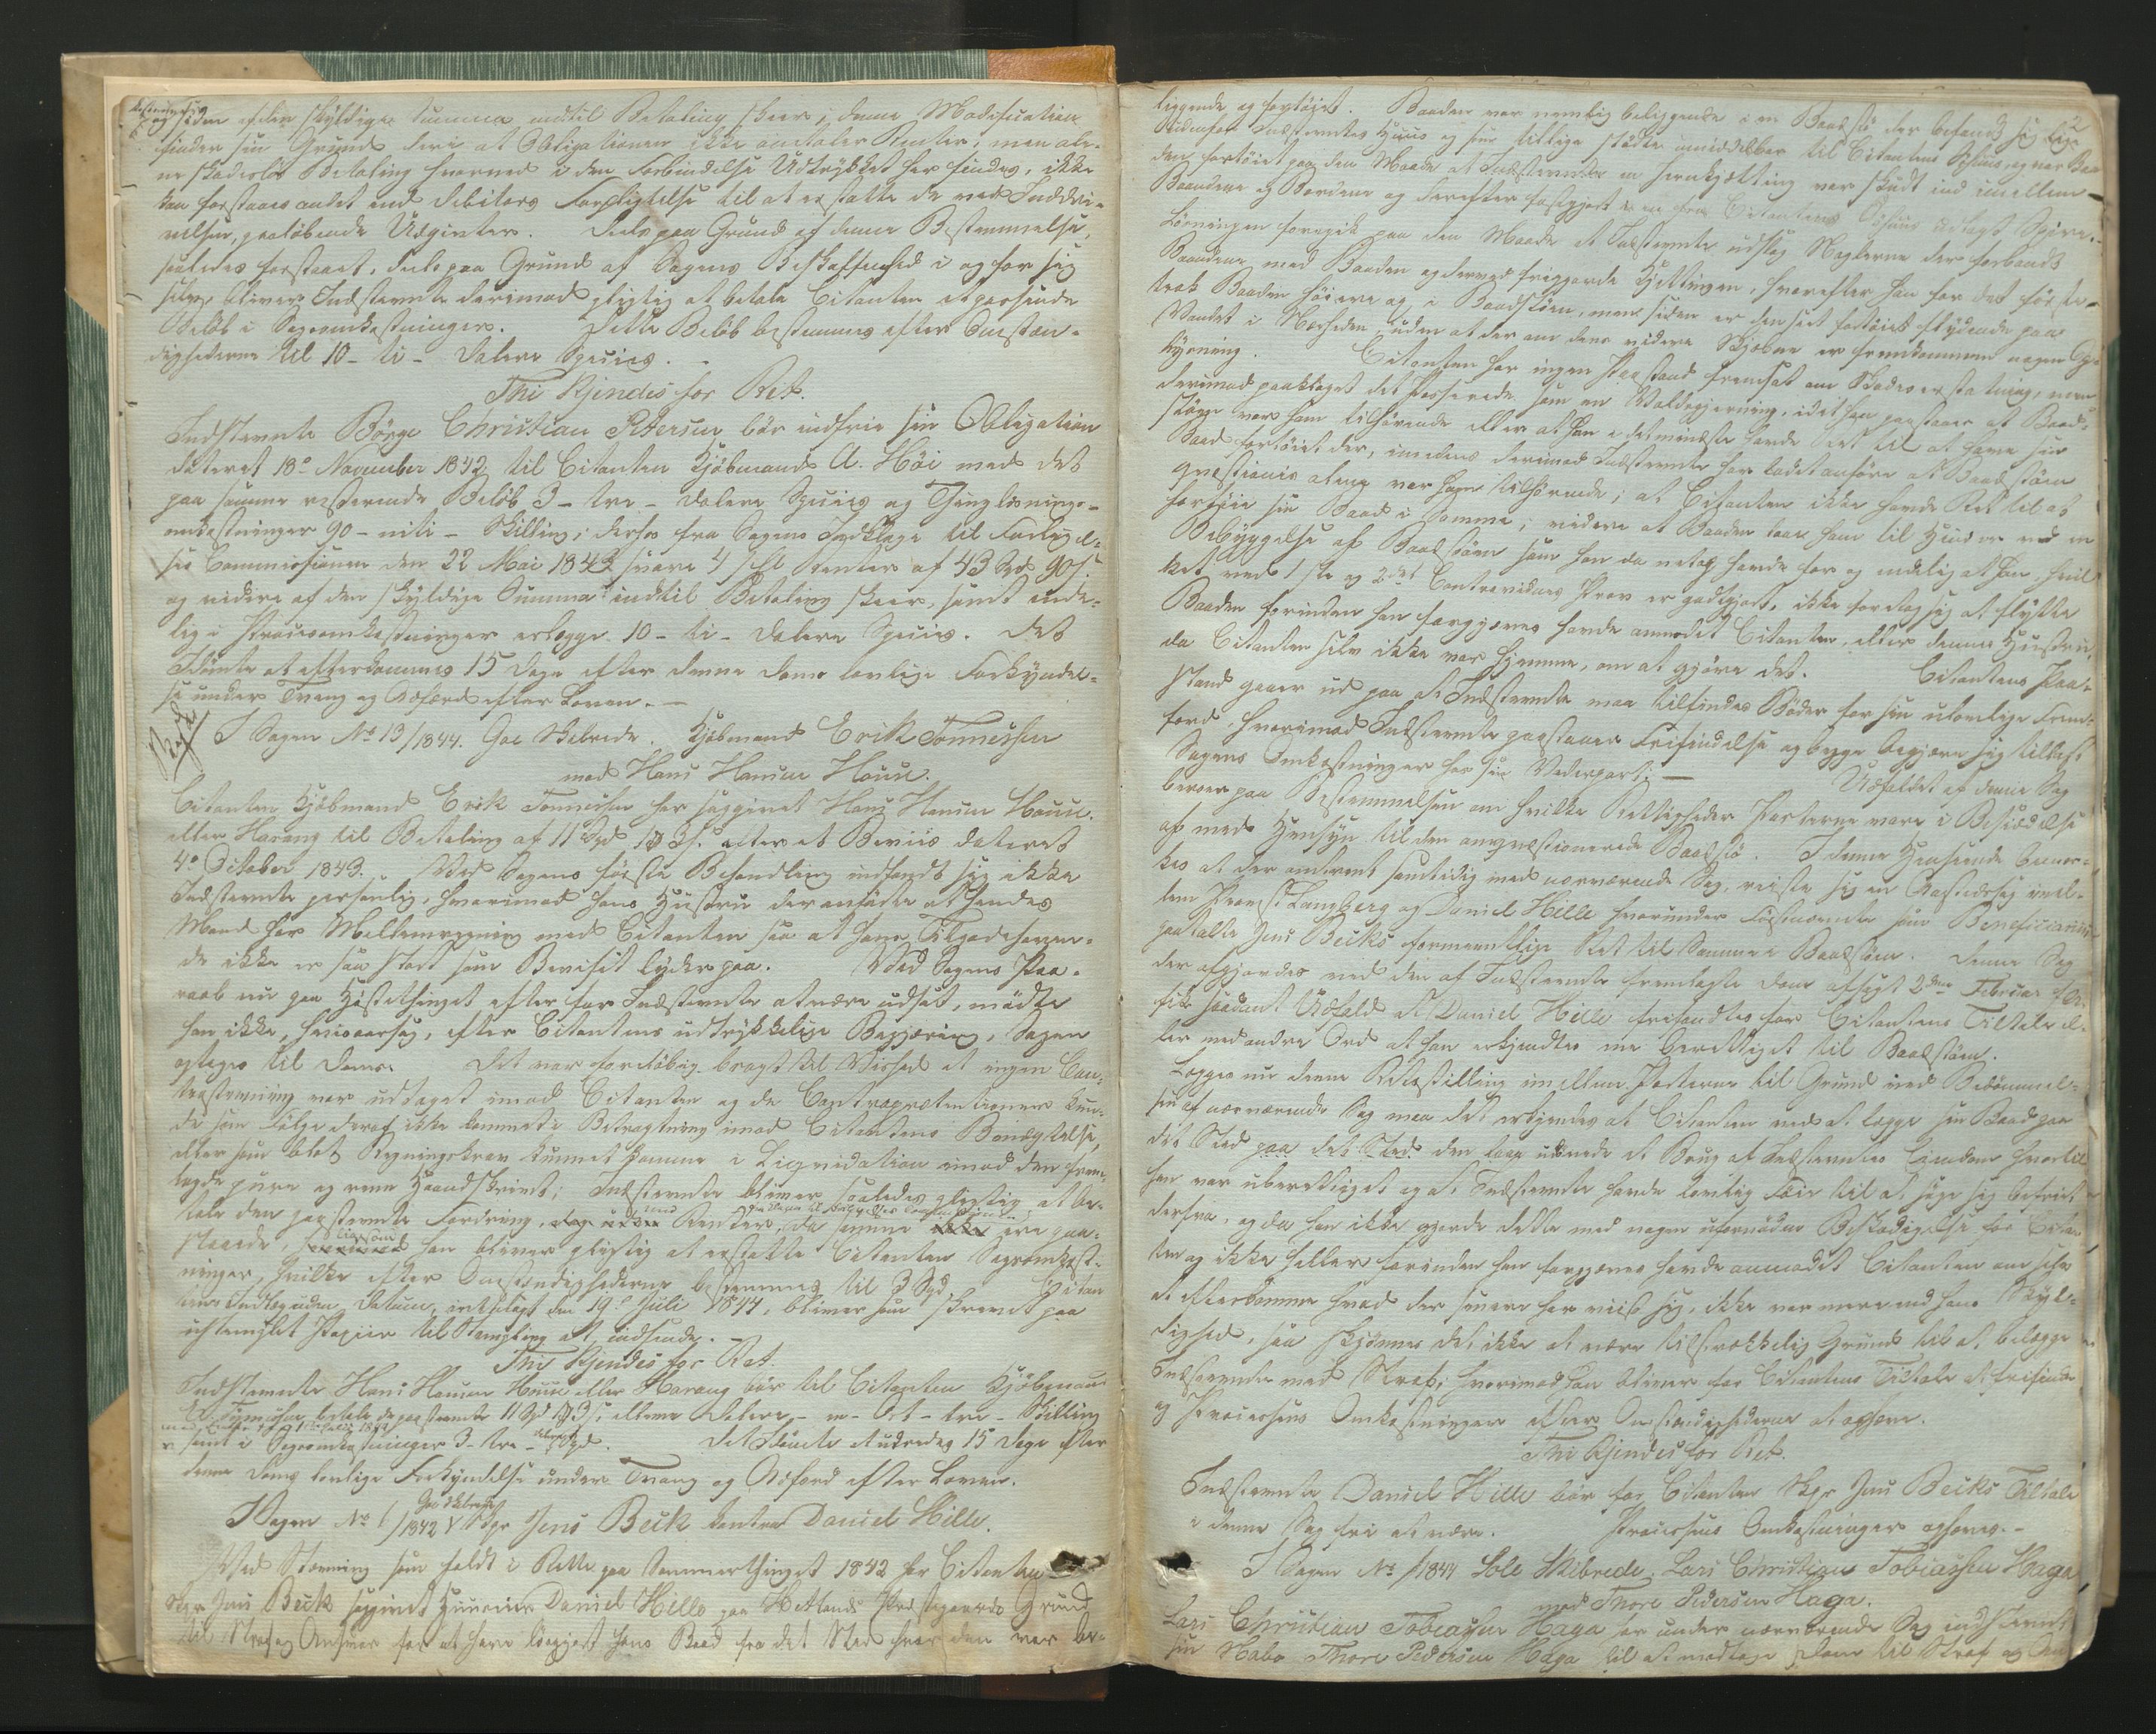 og siden af den skyldige Summa indtil Betaling skeer, denne Modification
finder sin Grund deri at Obligationen ikke omtaler Renter, men ale-
ne skadeslös Betaling hvormed i den Forbindelse Udtrykket her findes, ikke
kan forstaaes andet end Debitors Forpligtelse til at erstatte de ved Inddri-
velsen paalöbende Udgifter. Dels paa Grund af denne Bestemmelse,
saaledes forstaaet, dels paa Grund af Sagens Beskaffenhed i og for sig
selv, bliver Indstevnte derimod pligtig at betale Citanten et passende
Belöb i Sagsomkostninger. Dette Belöb bestemmes efter Omstæn-
dighederne til 10 - ti - Daler Species.
Thi Kjendes for Ret.
Indstevnte Börge Christian Petersen bör indfrie sin Obligation
dateret 18de November 1842 til Citanten Kjöbmand A. Höi med det
paa samme resterende Belöb 3 - tre - Daler Species og Thinglæsnings-
omkostninger 90 - niti - Skilling; derhos fra Sagens Indklage til Forligel-
ses Commissionen den 22 Mai 1843 svare 4 pCt Renter af 43 Spd 90 s
og videre af den skyldige Summa indtil Betaling skeer, samt ende-
lig i Procesomkostninger erlægge 10 - ti - Daler Species. Det
Idömte at efterkommes 15 Dage efter denne Doms lovlige Forkyndel-
se under Tvang og Adfærd efter Loven. -
I Sagen No 13/1844. Goe Skibrede. Kjöbmand Erik Tönnesen
mod Hans Hansen Houe.
Citanten Kjöbmand Erik Tönnesen har sagsögt Hans Hansen Houe.
eller Harang til Betaling af 11 Spd 1 3 s. efter et Beviis dateret
4de October 1843. Ved Sagens förste Behandling indfandt sig ikke
Indstevnte personlig, hvorimod hans Hustru der anförte at hendes
Mand har Mellemregning med Citanten saa at hans Tilgodehaven-
de ikke er saa stort som Beviset lyder paa. Ved Sagens Paa-
raab nu paa Höstethinget efter for Indstevnte at være udsat, mödte
han ikke, hvisaarsag, efter Citantens udtrykkelige Begjæring, Sagen
optages til Doms. Det var foreløbig bragt til Vished at ingen Con-
trastevning var udtaget imod Citanten og de Contraprætentioner kun-
de som Fölge deraf ikke komme i Betragtning imod Citantens Benægtelse,
eller som blot Regningskrav kunnet komme i Liqvidation imod den frem-
lagde pure og rene Haandskrivt; Indstevnte bliver saaledes pligtig at be-
tale den paastevnte Fordring, med Renter, da samme ere paa-
staaede, ligesom han bliver pligtig at erstatte Citanten Sagsomkost-
ninger, hvilke efter Omstændighederne bestemmes til 3 Spd. Citan
tens Indlæg uden Datum, indelagt den 19de Juli 1844, bliver som skrevet paa
ustemplet Papiir til Stempling at indsende. -
Thi Kjendes for Ret.
Indstevnte Hans Hansen Houe eller Harang bör til Citanten Kjöbmand
E. Tönnesen betale de paastevnte 11 Spd 1 3 s; elleve Daler - en - Ort - tre - Skilling
samt i Sagsomkostninger 3 - tre - Spd. Det Idömte at udredes 15 Dage efter
denne Doms lovlige Forkyndelse under Tvang og Adfærd efter Loven.
I Sagen No 1/1842 Goe Skibrede Skpr Jens Beck contra Daniel Hille.
Ved Stevning som faldt i Rette paa Sommerthinget 1842 har Citanten
Skpr Jens Beck sagsögt Huuseier Daniel Hille paa Hetlands Præstegaards Grund
til Straf og Ansvar for at have lösgjort hans Baad fra det Sted hvor den var be-
2
liggende og fortöiet. Baaden var nemlig beliggende i en Baadstö der befandt sig lige
udenfor Indstevntes Huus og som tillige stödte umiddelbar til Citantens Söhuus, og var Baa
den fortöiet paa den Maade at Indstevnte en Jernkjætting var skudt ind imellem
Baandene og Bordene og derefter fastgjort i en fra Citantens Söhuus udlagt Spire.
Lösningen foregik paa den Maade at Indstevnte udslog Naglerne der forbandt
Baandene med Baaden og derved friggjorde Kjettingen, hvorefter han for det förste
trak Baaden höiere op i Baadstöen, men siden er den seet fortöiet flydende paa
Vandet i Nærheden, uden at der om dens videre Skjebne er fremkommen nogen Op-
lysning. Citanten har ingen Paastand fremsat om Skadeserstatning, men
derimod paaklaget det Passerede som en Voldsgjerning, idet han paastaaer at Baad-
stöen var ham tilhörende eller at han i det mindste havde Ret til at have sin
Baad fortöiet der, imedens derimod Indstevnte har ladet anföre at Baadstöen
qvæstionis alene var ham tilhörende; at Citanten ikke havde Ret til at
fortöie sin Baad i Samme; videre at Baaden laae ham til Hinder ved en
Bebyggelse af Baadstöen som han da netop havde for og endelig at han, hvil
ket ved 1ste og 2det Contravidnes Prov er godtgjort, ikke foretog sig at flytte
Baaden forinden han forgjæves havde anmodet Citanten, eller dennes Hustru,
da Citanten selv ikke var hjemme, om at gjöre det. Citantens Paa-
stand gaaer ud paa at Indstevnte maa tilfindes Böder for sin ulovlige Frem-
færd, hvorimod Indstevnte paastaaer Frifindelse og begge begjære sig tillagt
Sagens Omkostninger hos sin Vederpart; - Udfaldet af denne Sag
beroer paa Bestemmelsen om hvilke Rettigheder Parterne vare i Besiddelse
af med Hensyn til den omqvæstionerede Baadstö. I denne Henseende bemær-
kes at der omtrent samtidig med nærværende Sag, reiste sig en Gjæsteretssag imel-
lem Provst Langberg og Daniel Hille hvorunder Förstnævnte som Beneficiarius
paatalte Jens Becks formeentlige Ret til Samme Baadstöen. Denne Sag
der afgjordes ved den af Indstevnte fremlagte Dom afsagt 2den Februar f. A.
fik saadant Udfald at Daniel Hille frifandtes for Citantens Tiltale el-
ler med andre Ord at han erkjendtes ene berettiget til Baadstöen.
Lægges nu denne Retsstilling imellem Parterne til Grund ved Bedömmel-
sen af nærværende Sag maa det erkjendes at Citanten ved at lægge sin Baad paa
det Sted paa det Sted den laae udövede et Brug af Indstevntes Eiendom hvortil
han var uberettiget og at Indstevnte havde lovlig Föie til at söge sig befriet
derfra, og da han ikke gjorde dette med nogen uforнöden Beskadigelse for Citan
ten og ikke heller forinden han forgjæves havde anmodet Citanten om selv
at efterkomme hvad der senere har viist sig, ikke var mere end hans Skyl-
dighed, saa skjönnes det ikke at være tilstrækkelig Grund til at belægge
Indstevnte med Straf; hvorimod han bliver for Citantens Tiltale at frifinde
og Processens Omkostninger efter Omstændighederne at ophæve.
Thi Kjendes for Ret.
Indstevnte Daniel Hille bör for Citanten Skpr Jens Becks Tiltale
i denne Sag fri at være. Processens Omkostninger ophæves. -
I Sagen No 1/1844 Sole Skibrede. Lars Christian Tobiassen Haga
mod Thore Pedersen Haga.
Lars Christian Tobiassen Haga har under nærværende Sag indstevnt
sin Nabo Thore Pedersen Haga til at modtage Dom til Straf og An